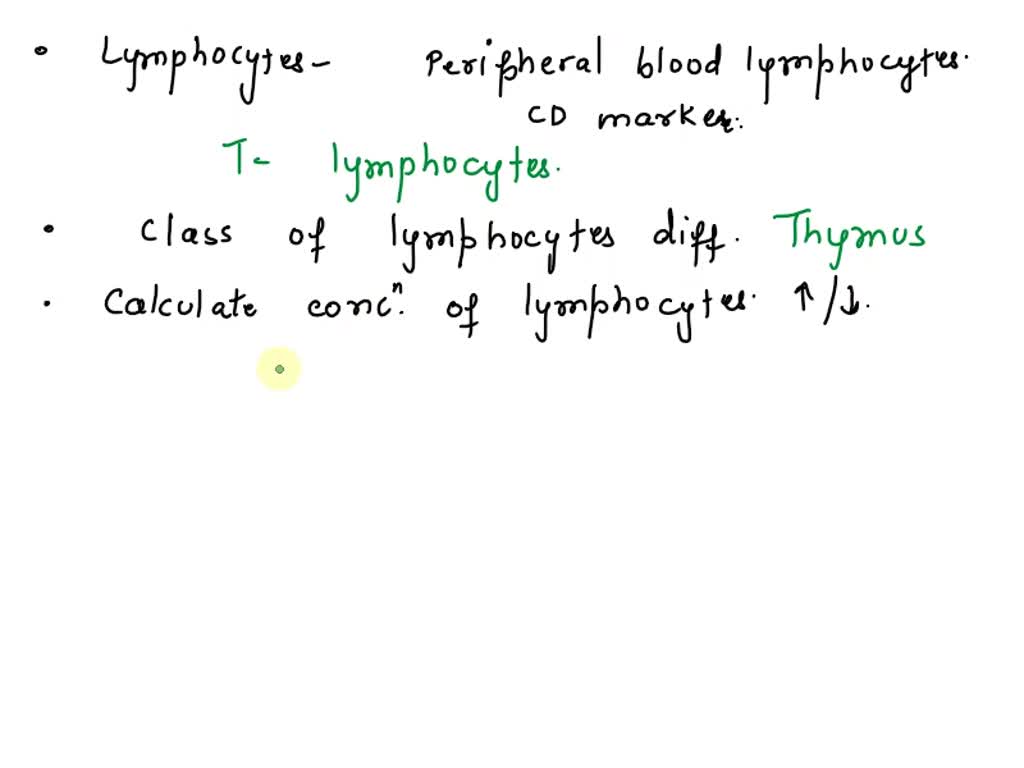 • Lymphocytes - Peripheral blood lymphocytes.
CD marker.
T- lymphocytes.
• Class of lymphocytes diff. Thymus
• Calculate concⁿ. of lymphocytes. ↑/↓.